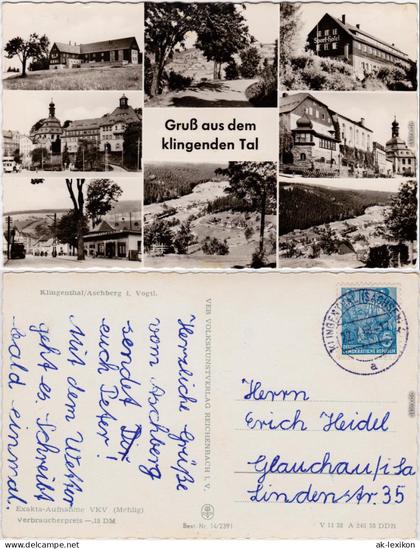 Sport-Hotel
Gruß aus dem
klingenden Tal
Klingenthal/Aschberg i. Vogtl.
Herzliche Grüße
vom Aschberg
sendet Dir
euch Peter!
Mit dem Wetter
geht es. Schreibt
bald einmal.
VEB VOLKSKUNSTVERLAG REICHENBACH I. V.
KLINGENTHAL (SACHSEN) 2
a
DEUTSCHE
DEMOKRATISCHE REPUBLIK
5
Herrn
Erich Heidel
Glauchau i/Sa
Lindenstr. 35
Exakta-Aufnahme VKV (Mehlig)
Verbraucherpreis —,15 DM
Best. Nr. 14/2391
V 11 28 A 240 58 DDR
www.ak-lexikon.de
ak-lexikon